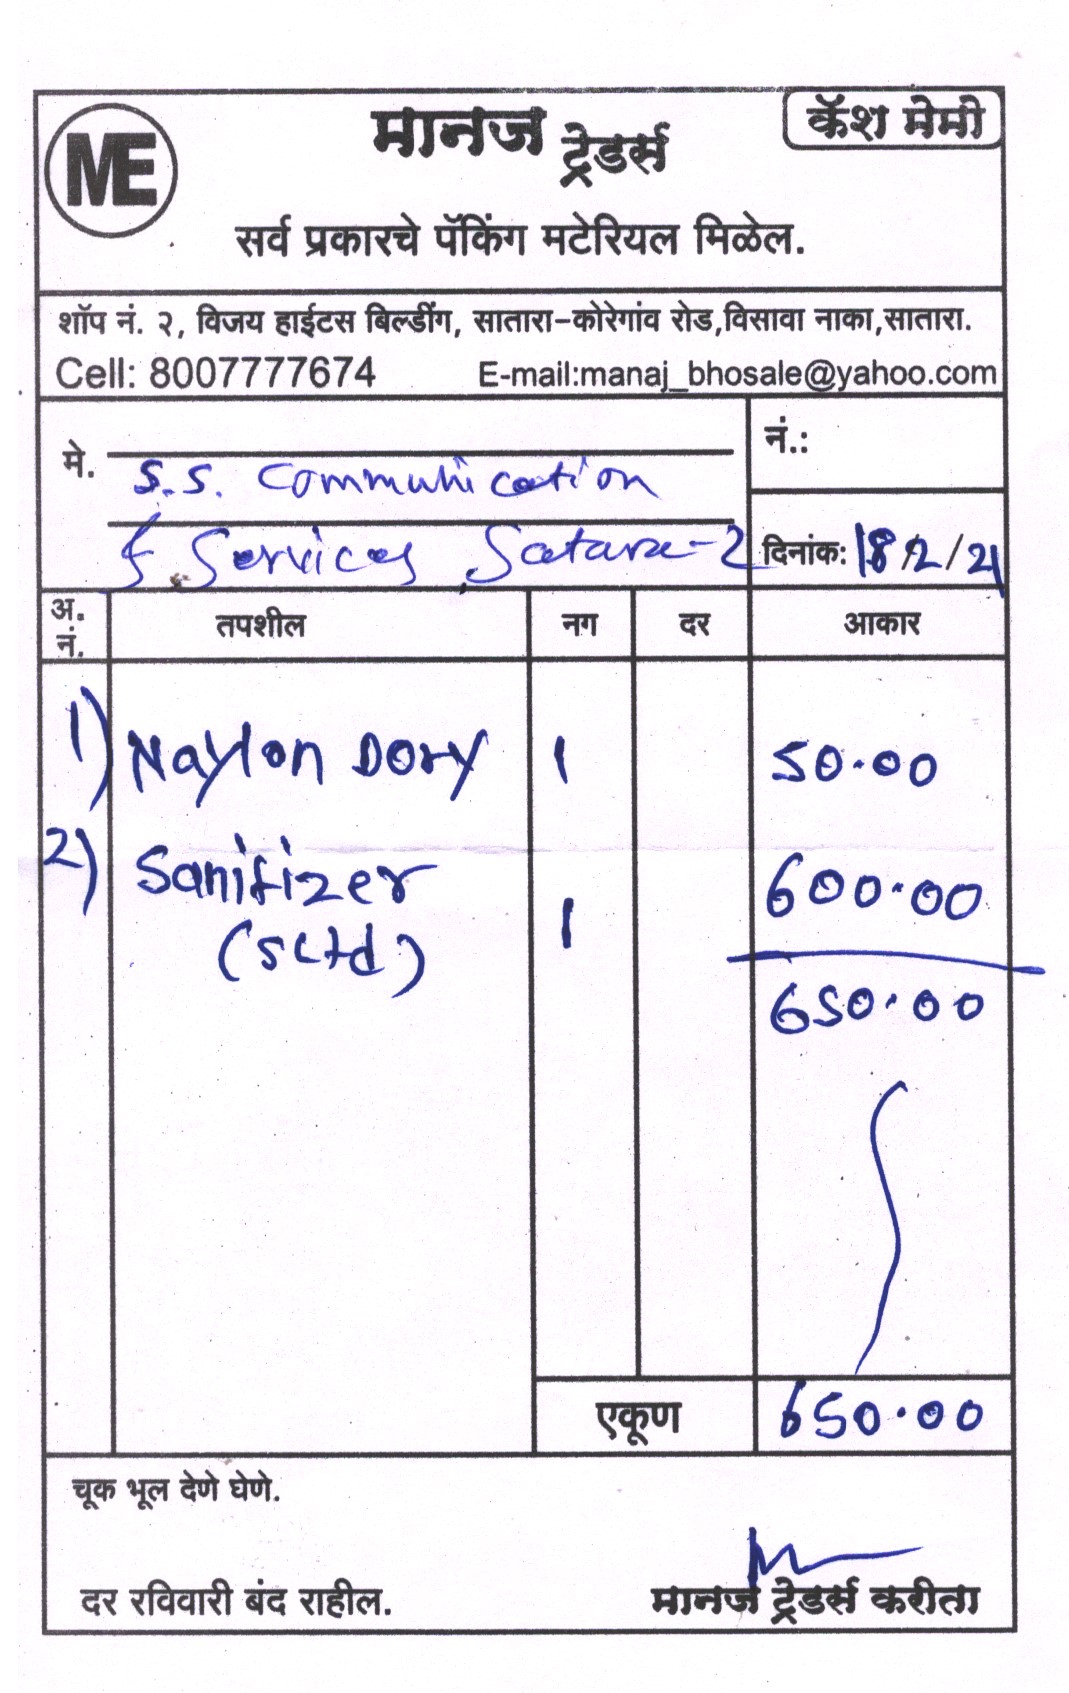 ME
मानज ट्रेडर्स
कॅश मेमो
सर्व प्रकारचे पॅकिंग मटेरियल मिळेल.
शॉप नं. २, विजय हाईटस बिल्डींग, सातारा-कोरेगांव रोड,विसावा नाका,सातारा.
Cell: 8007777674 E-mail:manaj_bhosale@yahoo.com
मे. S.S. Communication
& Services, Satara-2
नं.:
दिनांक: 18/2/21
अ. नं. तपशील नग दर आकार
1) Naylon Dory 1 50.00
2) Sanitizer 1 600.00
650.00
एकूण 650.00
चूक भूल देणे घेणे.
दर रविवारी बंद राहील.
मानज ट्रेडर्स करीता